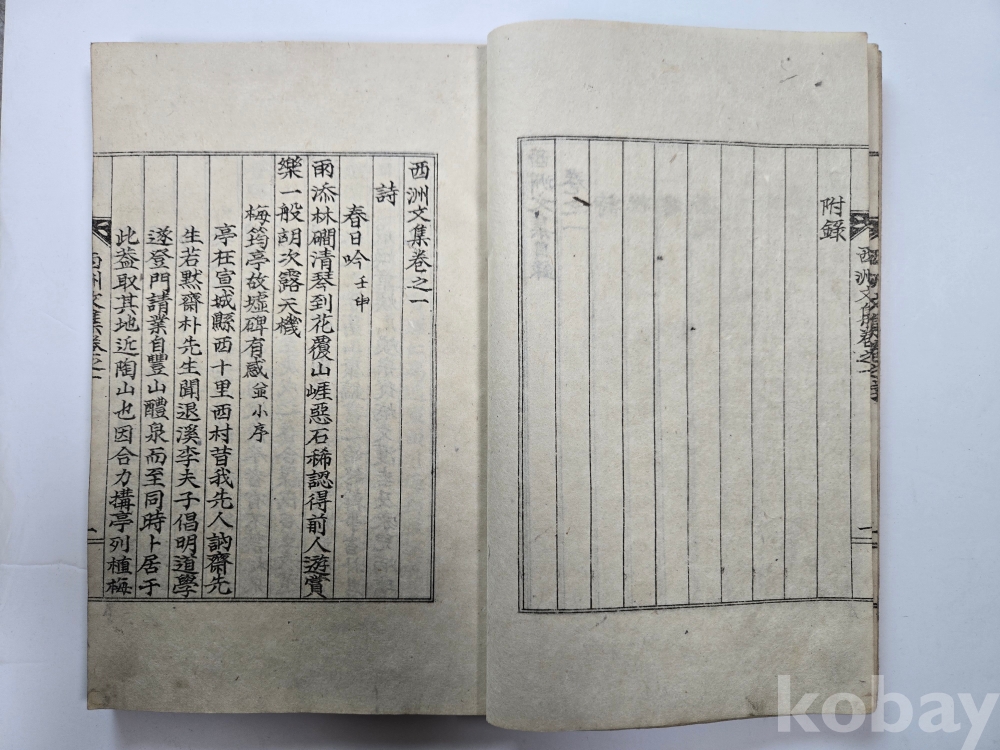 附錄
西洲文集卷之一
詩
春日吟 壬申
雨添林磵清琴到花覆山崕惡石稀認得前人遊賞
樂一般胡次露天機
梅筠亭故墟碑有感 並小序
亭在宣城縣西十里西村昔我先人訥齋先
生若黙齋朴先生聞退溪李夫子倡明道學
遂登門請業自豐山醴泉而至同時卜居于
此葢取其地近陶山也因合力搆亭列植梅
西洲文集卷之一
一
kobay